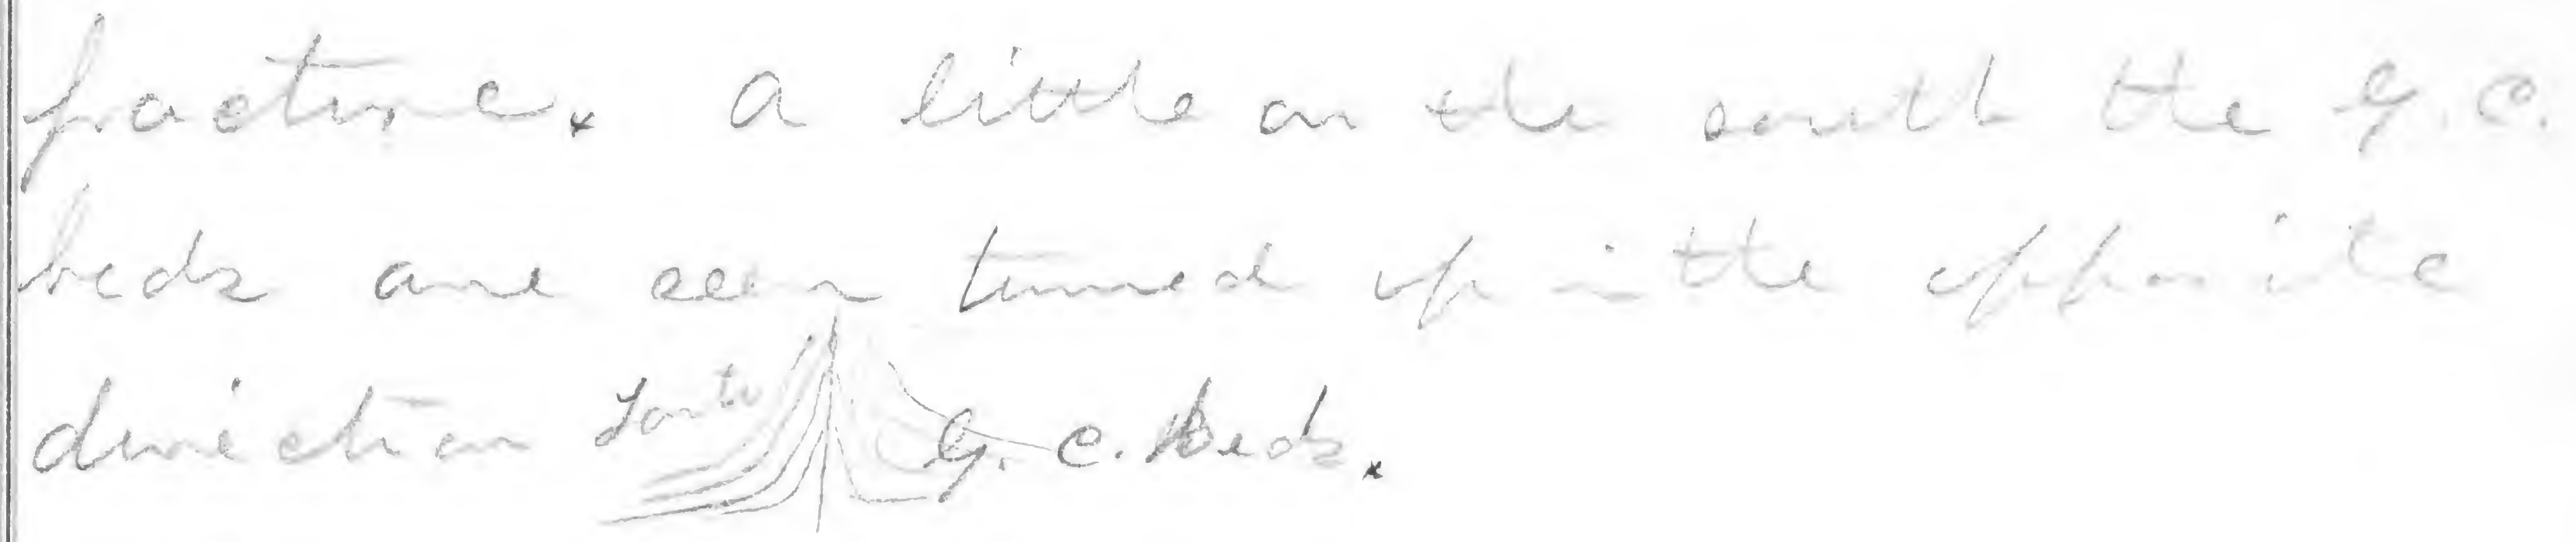 fracture. A little on the south the G. C.
beds are seen turned up in the opposite
direction G. C. beds.